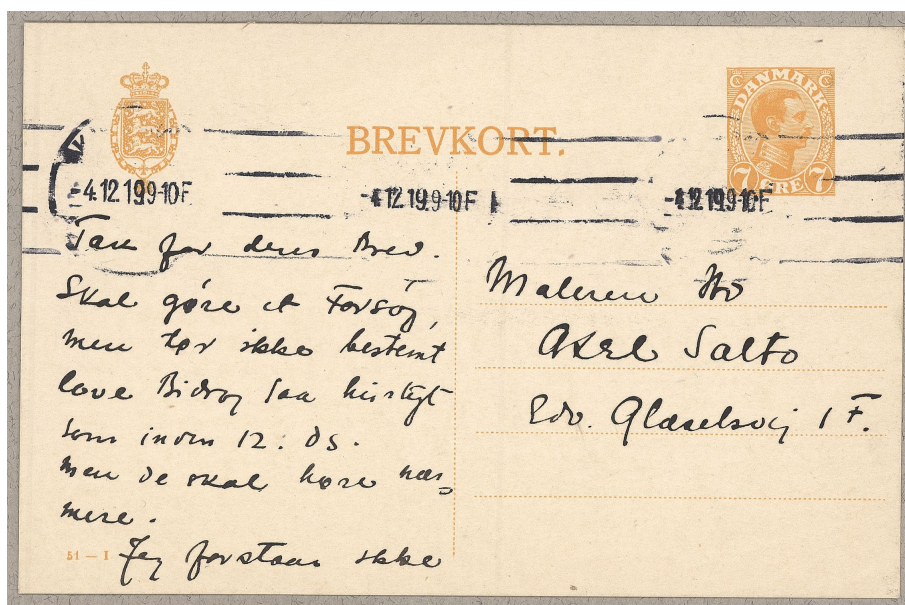 BREVKORT.
DANMARK
7 ØRE 7
4.12.19.9-10F
-4.12.19.9-10F
-4.12.19.9-10F
Tak for deres Brev.
Skal gøre et Forsøg,
men tør ikke bestemt
love Bidrag saa hurtigt
som inden 12. ds.
Men De skal høre nær=
mere.
Jeg forstaar ikke
51 — I
Maleren Hr
Axel Salto
Edv. Glæselsvej 1 F.